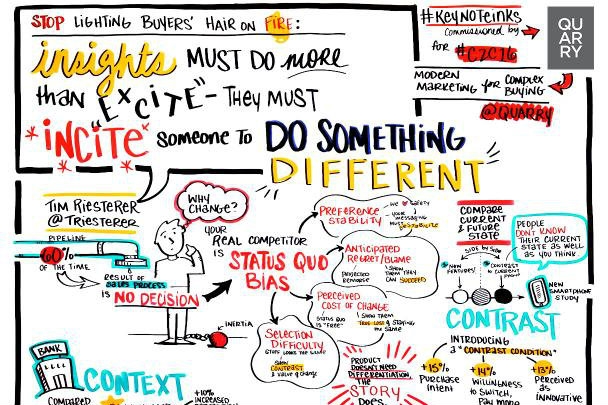 STOP LIGHTING BUYERS' HAIR ON FIRE:
insights MUST DO more
than "EXCITE" - THEY MUST
*INCITE* someone TO DO SOMETHING
DIFFERENT
#KEYNOTEINKS
commissioned by
for #C2C16
MODERN
MARKETING for COMPLEX
BUYING
@QUARRY
QUARRY
TIM RIESTERER
@TRIESTERER
PIPELINE
60%
OF THE TIME
RESULT OF
SALES PROCESS
IS NO DECISION
WHY
CHANGE?
YOUR
REAL COMPETITOR
IS
STATUS QUO
BIAS
INERTIA
PREFERENCE
STABILITY
WE ♥ SAFETY
YOUR
MESSAGING
MUST
DESTABILIZE
ANTICIPATED
REGRET/BLAME
PROJECTED
REMORSE
SHOW THEM
THEY CAN
SUCCEED
PERCEIVED
COST OF CHANGE
STATUS QUO
IS "FREE"
SHOW THEM
TRUE COST of STAYING
the SAME
SELECTION
DIFFICULTY
OPTIONS LOOK THE SAME
SHOW
CONTRAST
& VALUE of CHANGE
COMPARE
CURRENT
& FUTURE
STATE
SIDE BY SIDE
NEW
FEATURES!
CONTRAST
TO CURRENT
PEOPLE
DON'T KNOW
THEIR CURRENT
STATE AS WELL
AS YOU THINK
NEW
SMARTPHONE
STUDY
CONTRAST
INTRODUCING
a "CONTRAST CONDITION"
+15%
PURCHASE
INTENT
+14%
WILLINGNESS
TO SWITCH,
PAY MORE
+13%
PERCEIVED
as
INNOVATIVE
BANK
CONTEXT
COMPARED
+10%
INCREASED
PRODUCT
DOESN'T NEED
DIFFERENTIATION,
THE
STORY
DOES